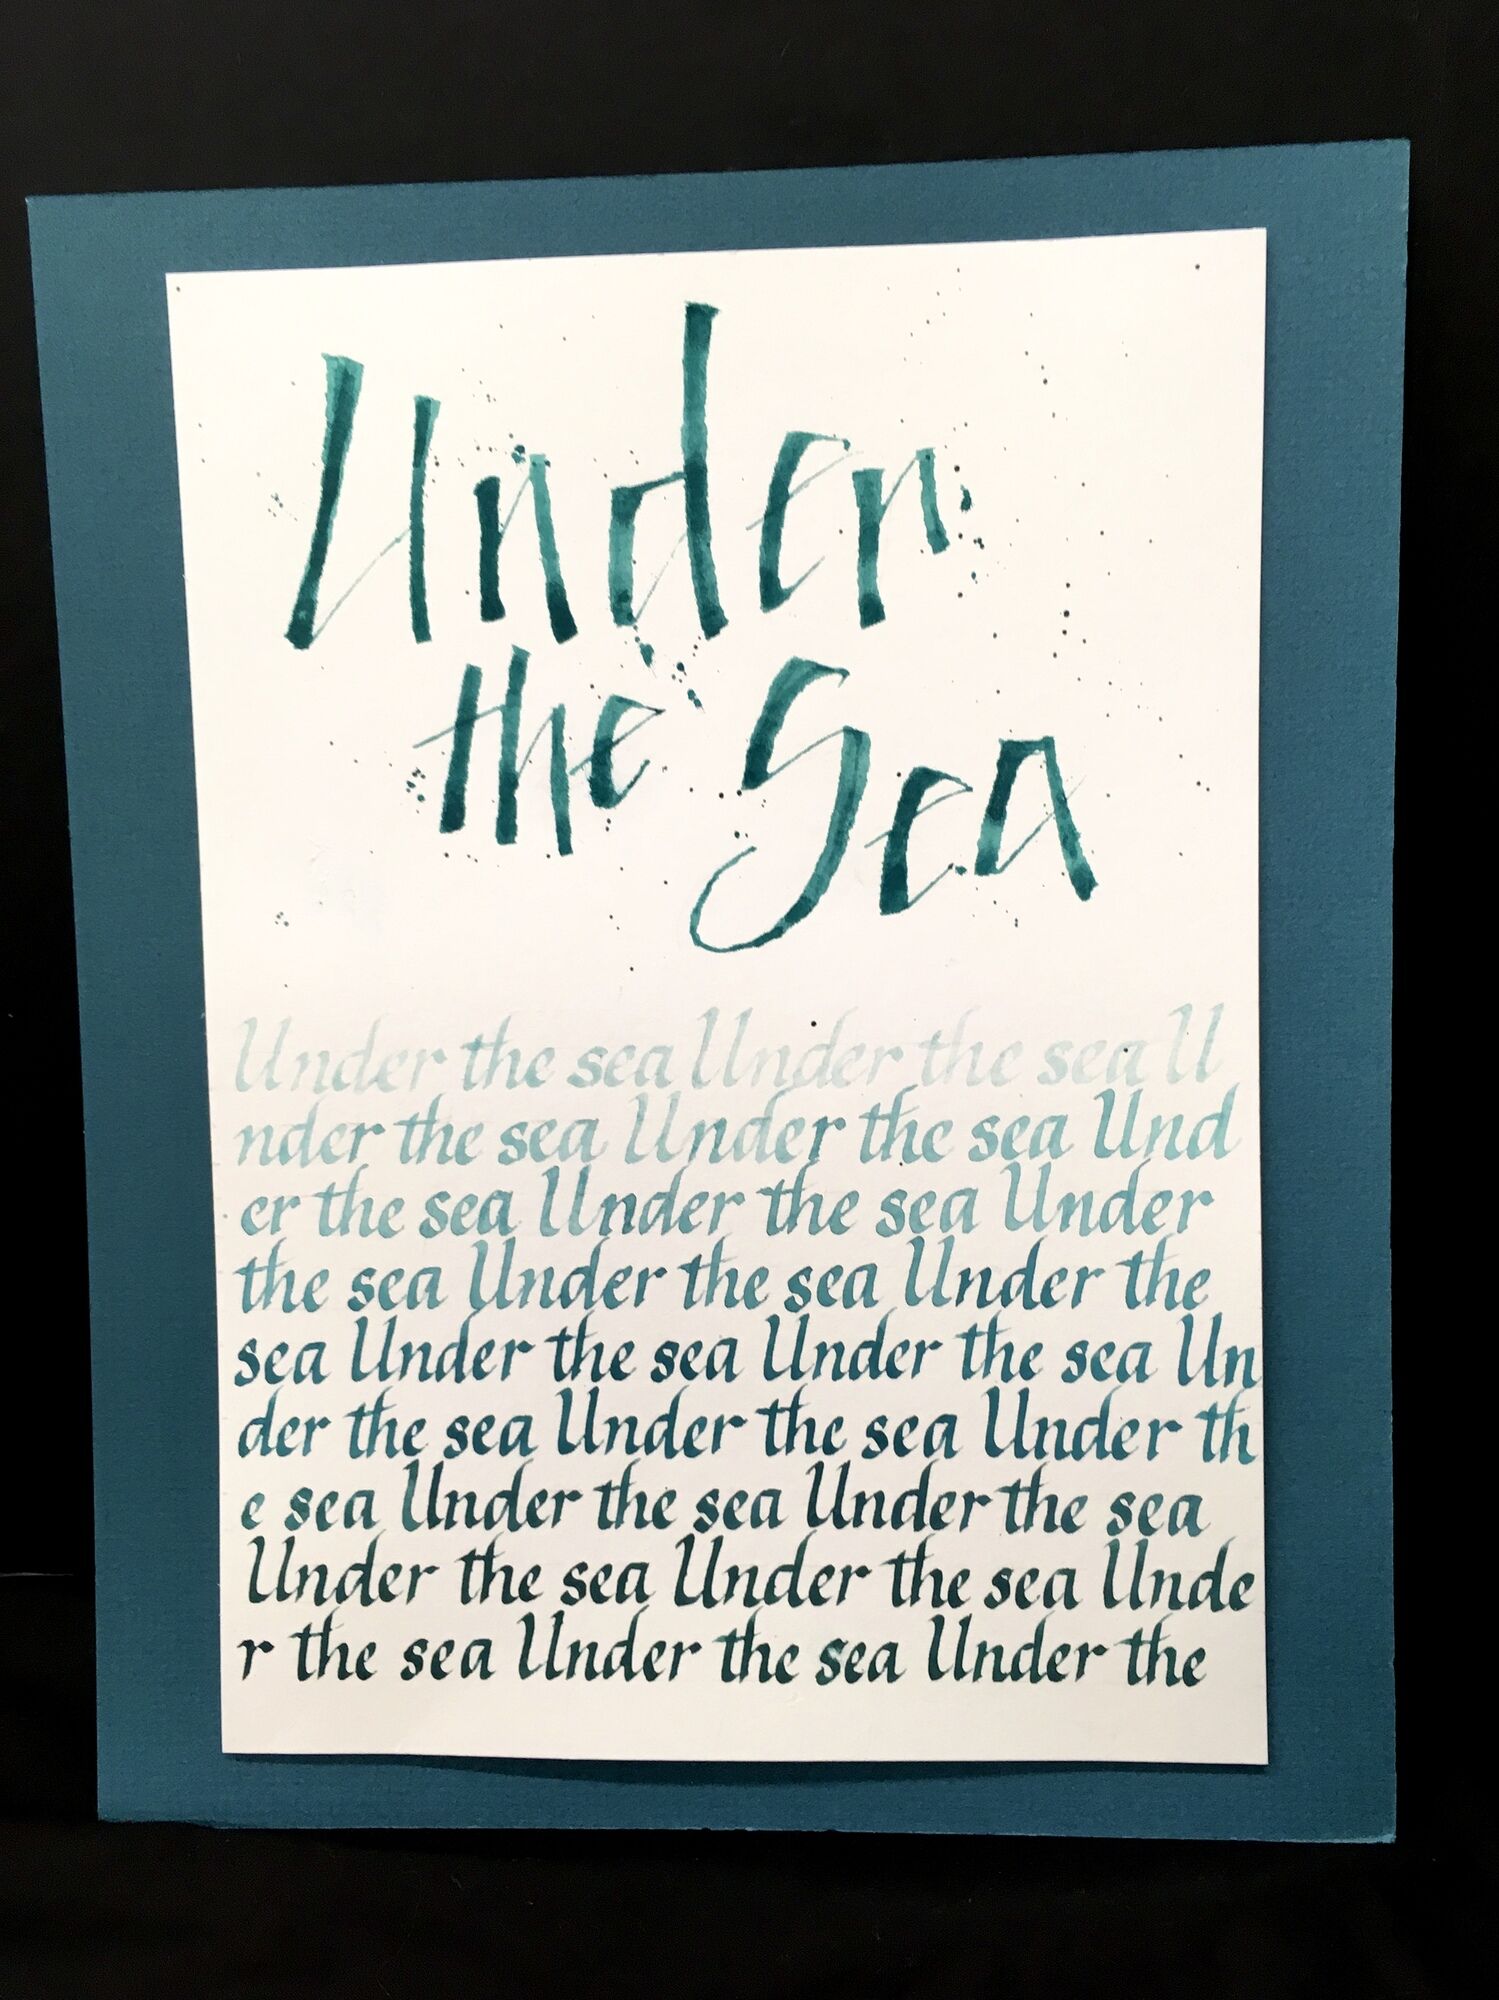 Under
the Sea
Under the sea Under the sea U
nder the sea Under the sea Und
er the sea Under the sea Under
the sea Under the sea Under the
sea Under the sea Under the sea Un
der the sea Under the sea Under th
e sea Under the sea Under the sea
Under the sea Under the sea Unde
r the sea Under the sea Under the